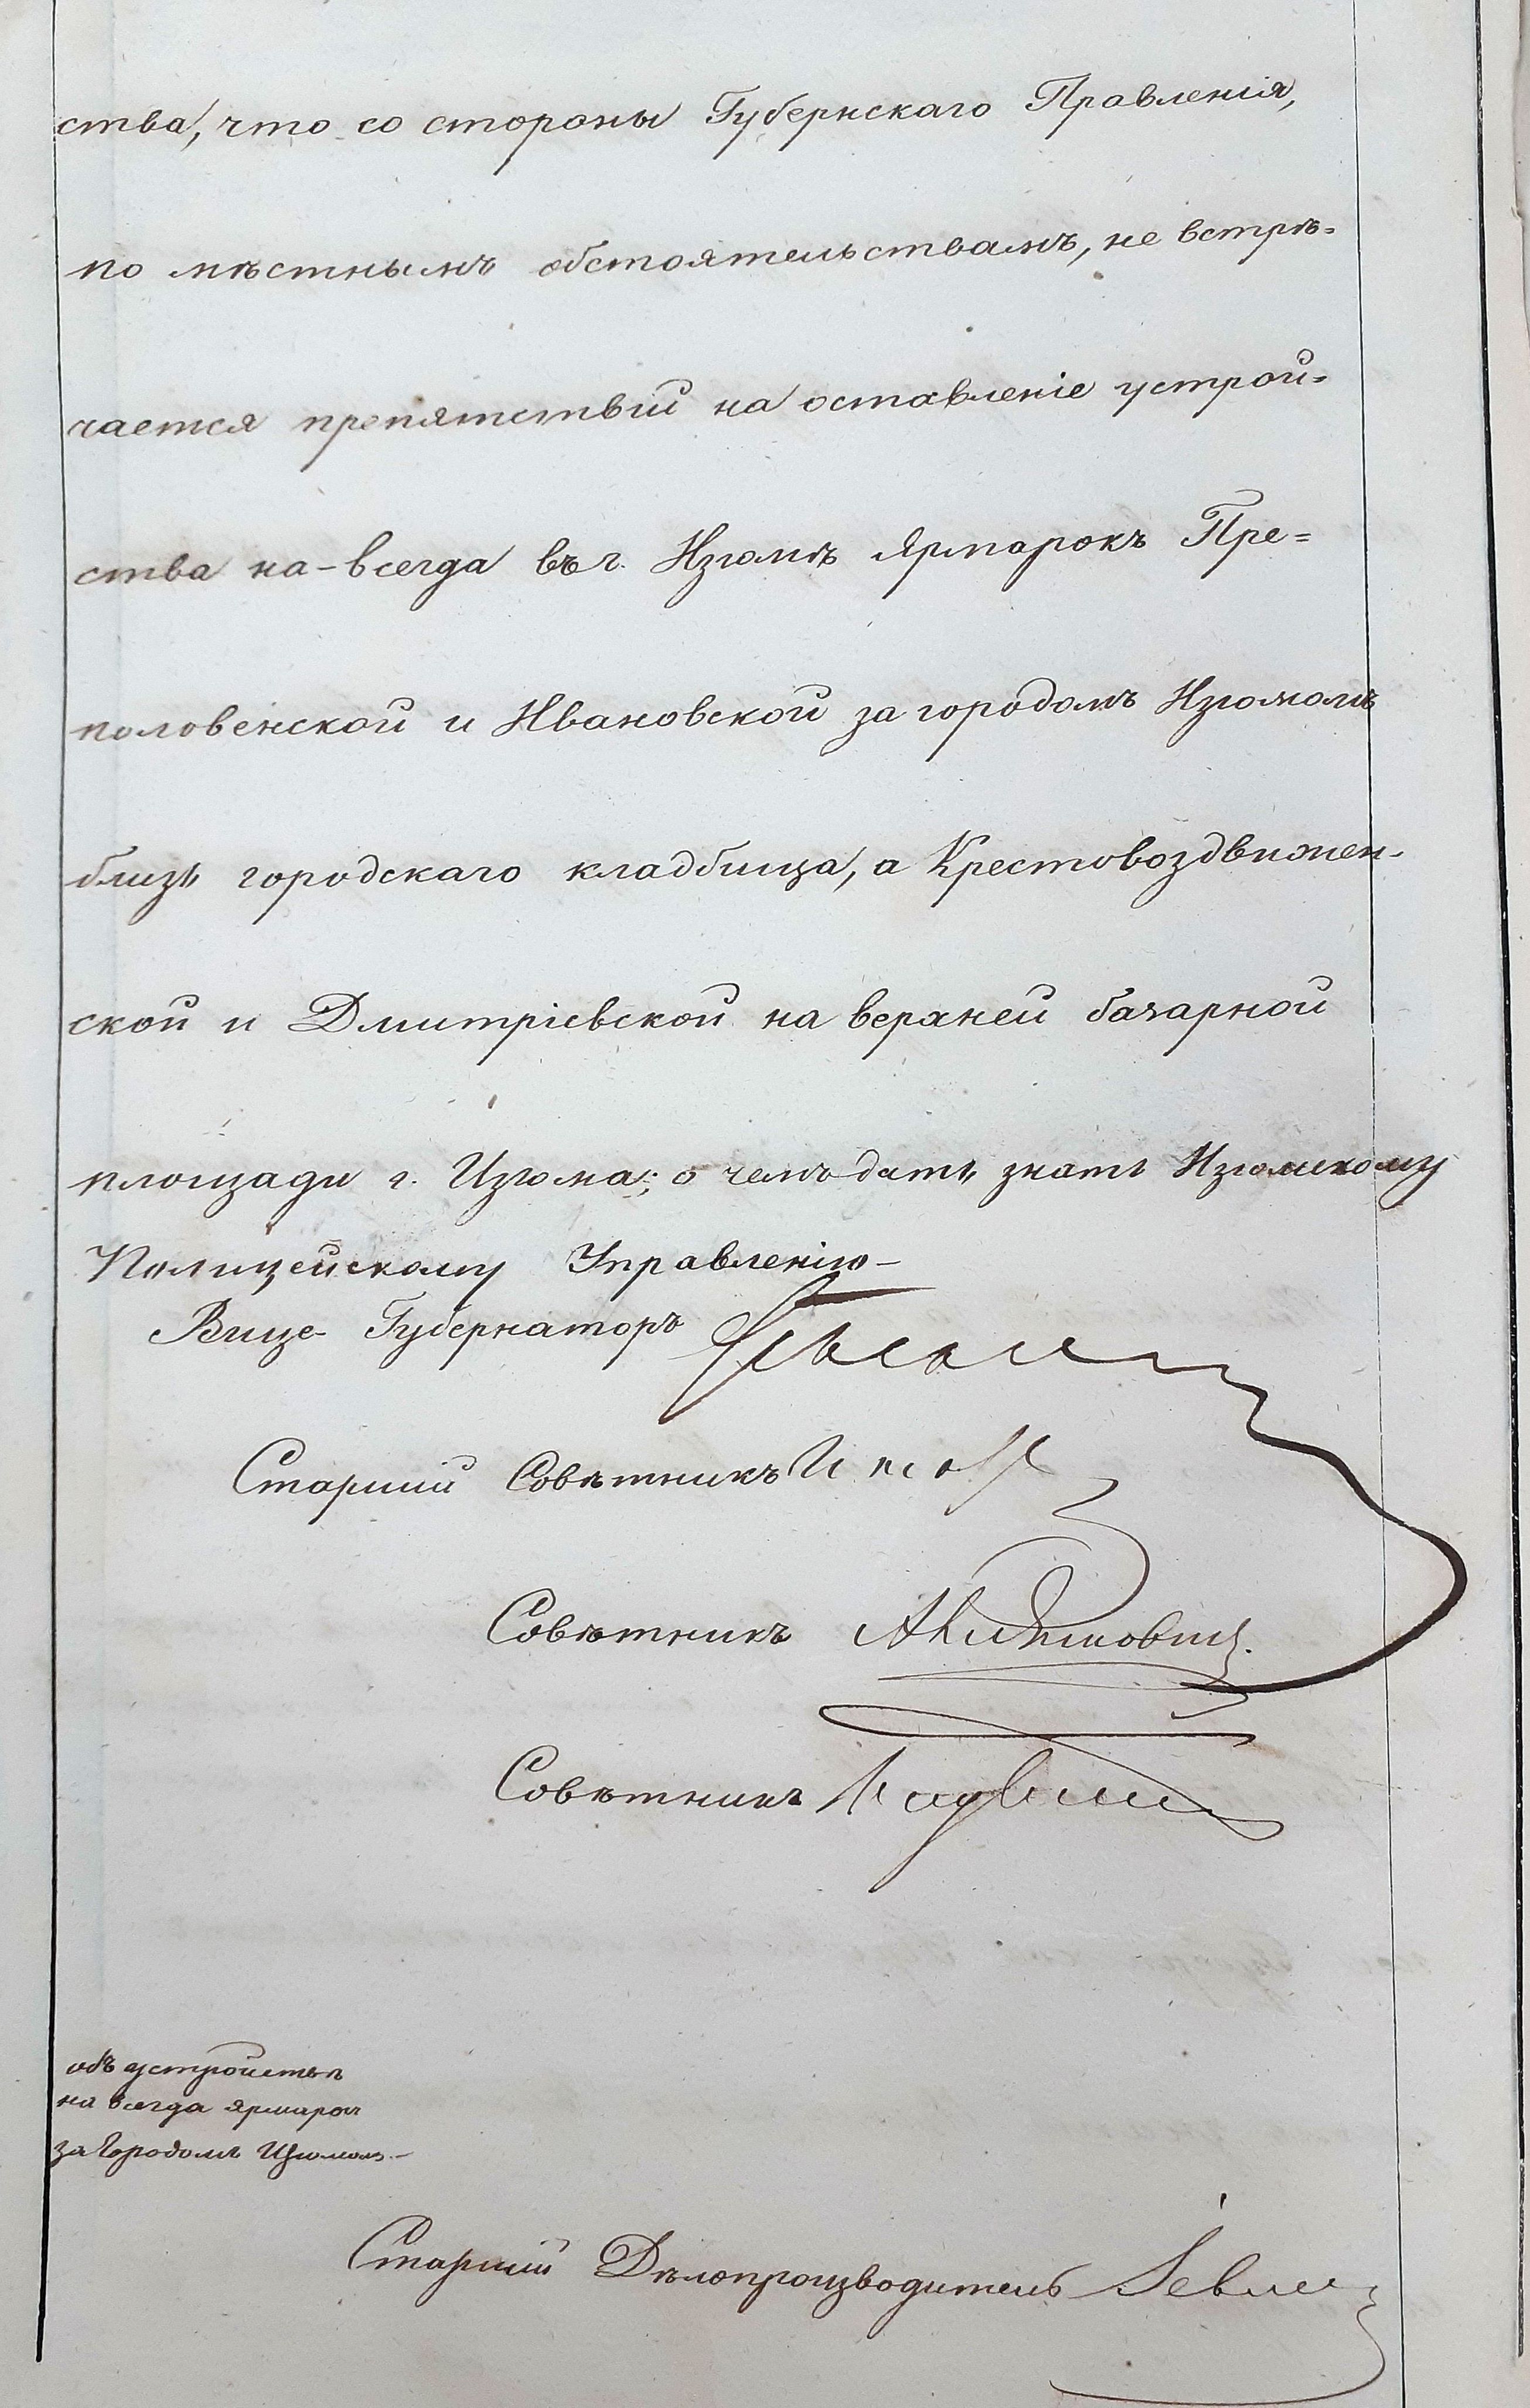 ства, что со стороны Губернскаго Правленія,
по мѣстнымъ обстоятельствамъ, не встрѣ=
чается препятствій на оставленіе устрой=
ства на-всегда въ г. Изюмѣ ярмарокъ Пре=
половенской и Ивановской за городомъ Изюмомъ
близь городскаго кладбища, а Крестовоздвижен-
ской и Дмитріевской на верхней базарной
площади г. Изюма; о чемъ дать знать Изюмскому
Полицейскому Управленію –
Вице-Губернаторъ
Старшій Совѣтникъ
Совѣтникъ
Совѣтникъ
объ устройствѣ
на всегда ярмарок
за Городомъ Изюмомъ. –
Старшій Дѣлопроизводитель